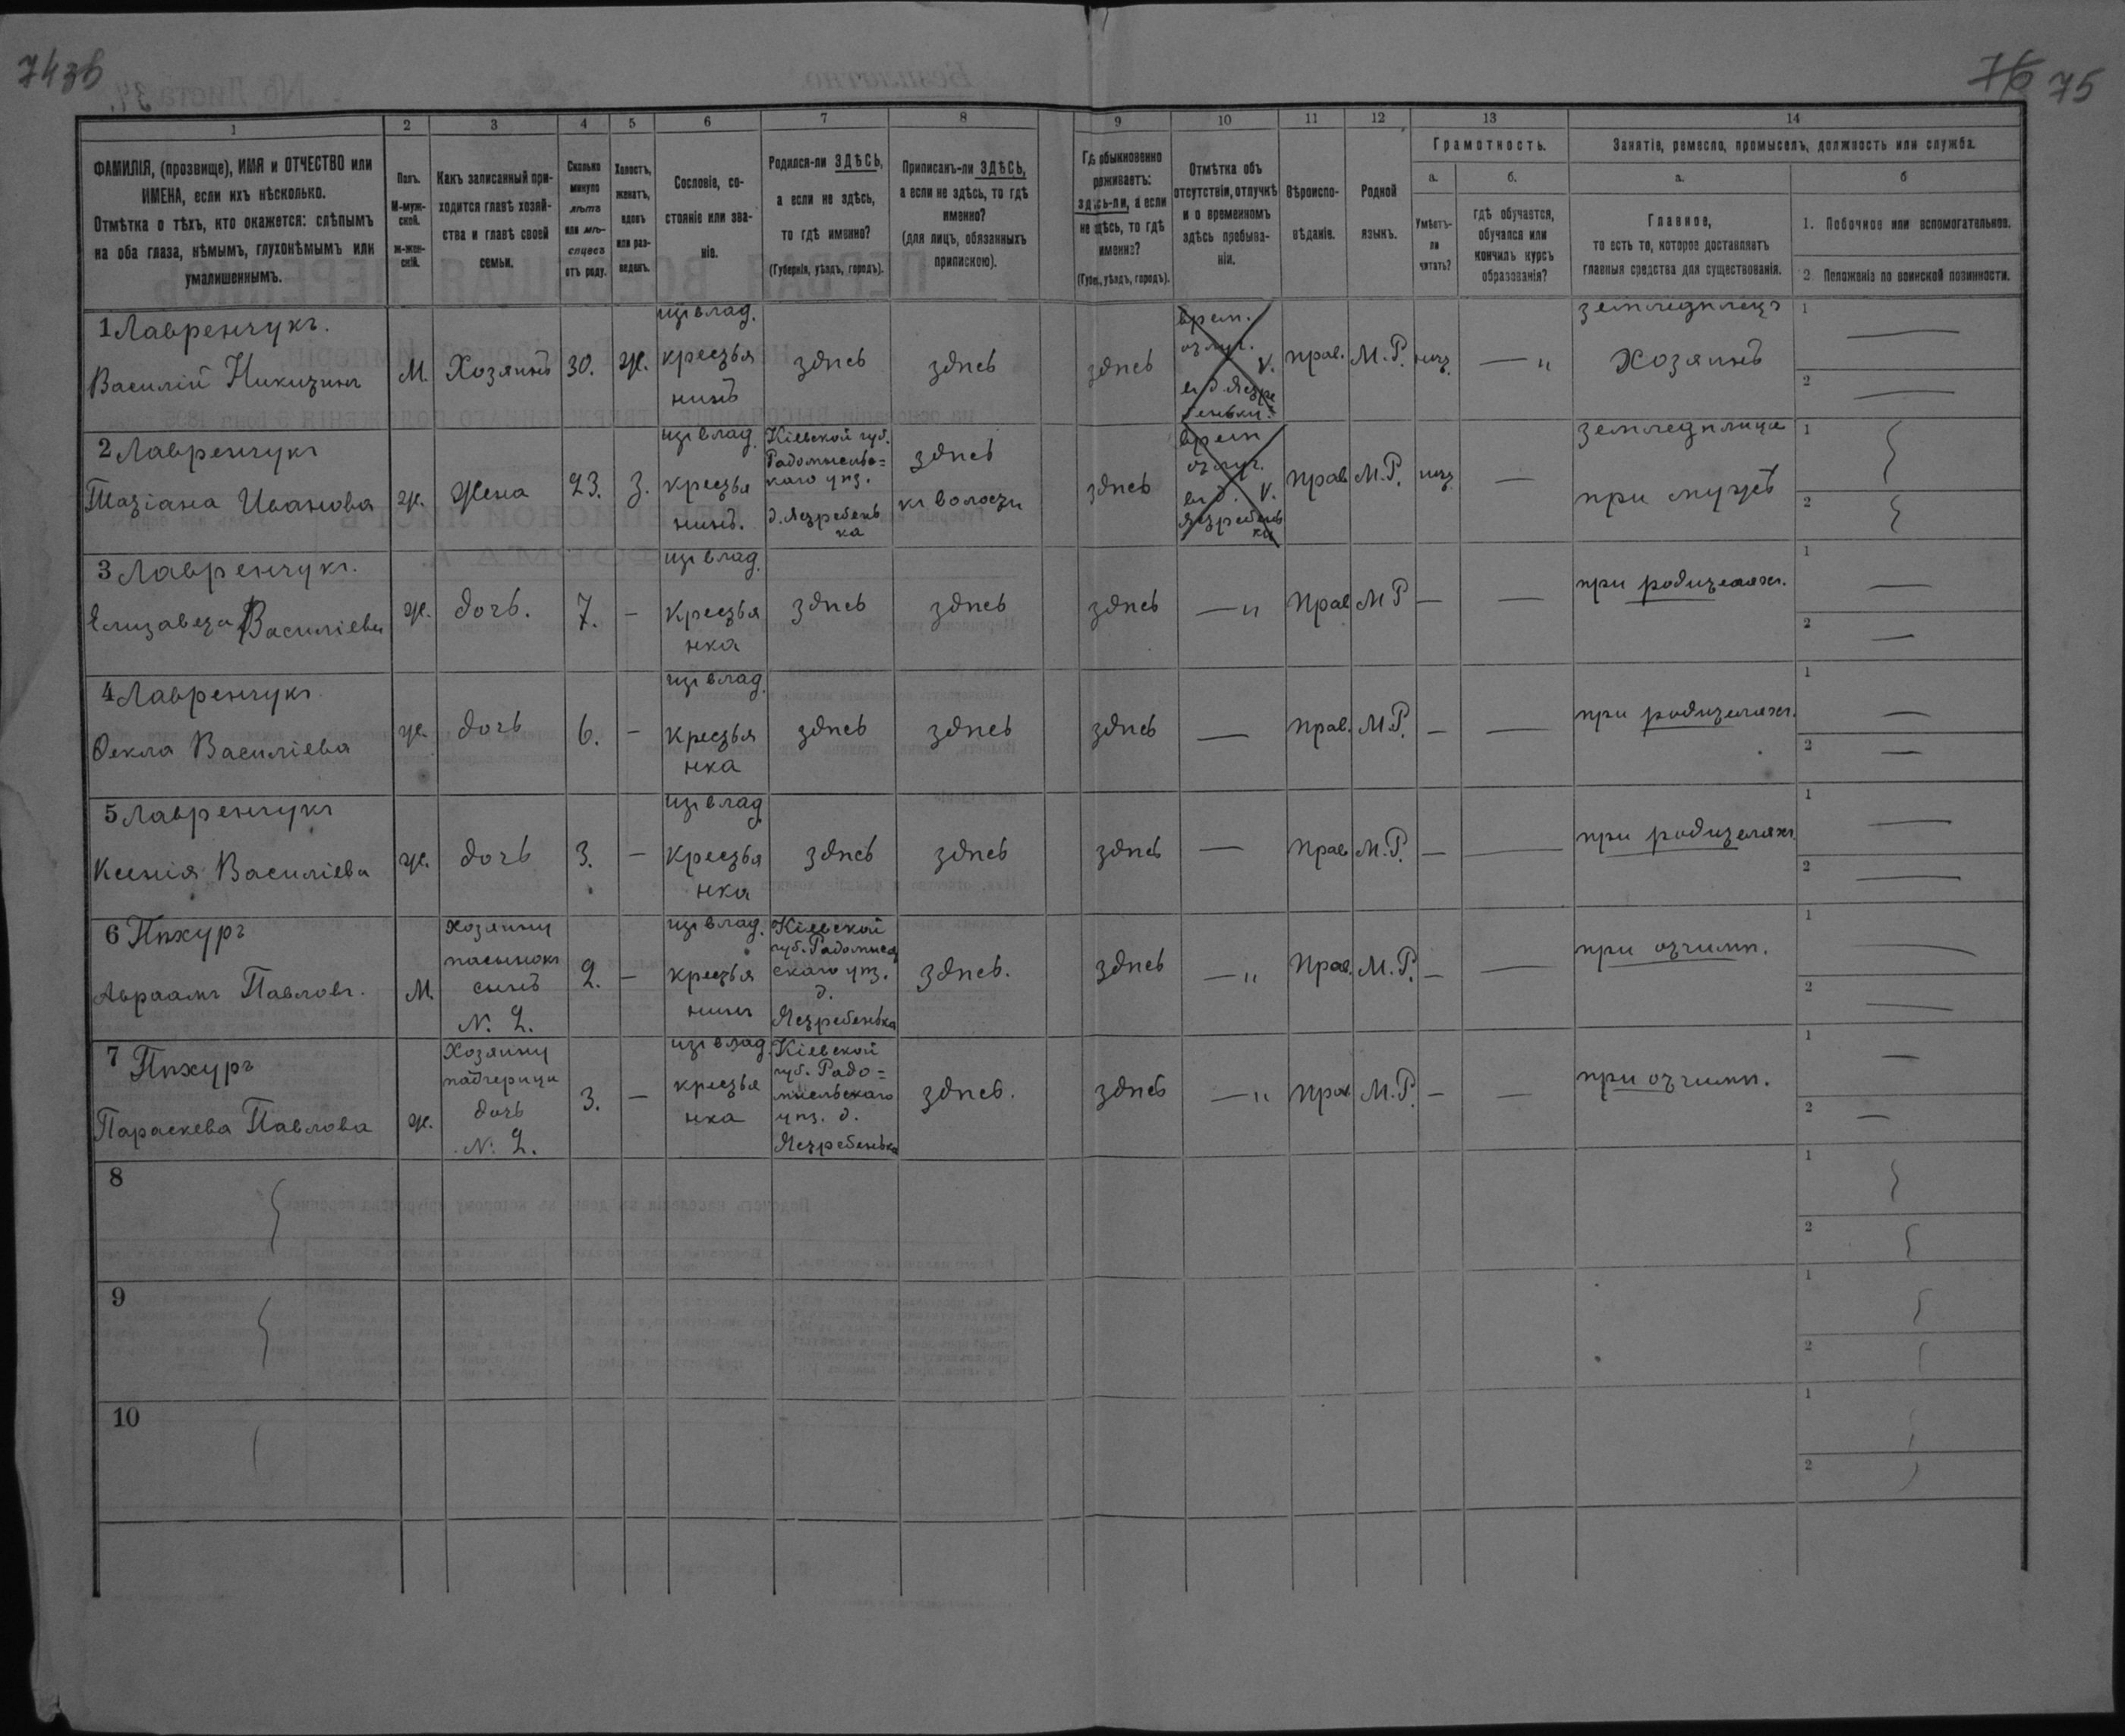 74зв
76 75
1 2 3 4 5 6 7 8 9 10 11 12 13 14
ФАМИЛІЯ, (прозвище), ИМЯ и ОТЧЕСТВО или ИМЕНА, если ихъ нѣсколько.
Отмѣтка о тѣхъ, кто окажется: слѣпымъ на оба глаза, нѣмымъ, глухонѣмымъ или умалишеннымъ.
Полъ. М-мужской. Ж-женскій.
Какъ записанный приходится главѣ хозяйства и главѣ своей семьи.
Сколько минуло лѣтъ или мѣсяцевъ отъ роду.
Холостъ, женатъ, вдовъ или разведенъ.
Сословіе, состояніе или званіе.
Родился-ли ЗДѢСЬ, а если не здѣсь, то гдѣ именно?
(Губернія, уѣздъ, городъ).
Приписанъ-ли ЗДѢСЬ, а если не здѣсь, то гдѣ именно?
(для лицъ, обязанныхъ припискою).
Гдѣ обыкновенно проживаетъ: здѣсь-ли, а если не здѣсь, то гдѣ именно?
(Губер., уѣздъ, городъ).
Отмѣтка объ отсутствіи, отлучкѣ и о временномъ здѣсь пребываніи.
Вѣроисповѣданіе.
Родной языкъ.
Грамотность.
а. Умѣетъ-ли читать?
б. гдѣ обучается, обучался или кончилъ курсъ образованія?
Занятіе, ремесло, промыселъ, должность или служба.
а. Главное,
то есть то, которое доставляетъ главныя средства для существованія.
б
1. Побочное или вспомогательное.
2 Положеніе по воинской повинности.
1 Лавренчукъ.
Василій Никитинъ
М. Хозяинъ 30. ж.
изъ влад.
крестья
нинъ
здѣсь здѣсь здѣсь
врем.
отлуч.
V.
въ д. Ястре
беньки.
прав. М.Р. нѣт. — "
земледѣлецъ
Хозяинъ
1 —
2 —
2 Лавренчукъ
Татіана Иванова
ж. Жена 23. з.
изъ влад.
крестья
нинъ.
Кіевской губ.
Радомысльс=
каго уѣз.
д. Ястребень
ка
здѣсь
къ волости
здѣсь
врем
отлуч.
въ д. V.
Ястребень
ки
прав М.Р. нѣт. —
земледѣлица
при мужѣ
1
2
3 Лавренчукъ.
Елизавета Василіева
ж. дочь. 7. —
изъ влад.
Крестья
нка
здѣсь здѣсь здѣсь — " Прав М Р — —
при родителяхъ.
1 —
2 —
4 Лавренчукъ.
Ѳекла Василіева
ж. дочь 6. —
изъ влад.
Крестья
нка
здѣсь здѣсь здѣсь — Прав. М.Р. — —
при родителяхъ.
1 —
2 —
5 Лавренчукъ
Ксенія Василіева
ж. дочь 3. —
изъ влад
Крестья
нка
здѣсь здѣсь здѣсь — Прав М.Р. — —
при родителяхъ.
1 —
2 —
6 Пѣхуръ
Авраамъ Павловъ.
М.
Хозяину
пасынокъ
сынъ
N. 2.
2. —
изъ влад.
крестья
нинъ
Кіевской
губ. Радомысл
скаго уѣз.
д.
Ястребенька
здѣсь. здѣсь — " Прав. М.Р. — —
при отчимѣ.
1 —
2 —
7 Пѣхуръ
Параскева Павлова
ж.
Хозяину
падчерица
дочь
N. 2.
3. —
изъ влад.
крестья
нка
Кіевской
губ. Радо=
мысльскаго
уѣз. д.
Ястребенька
здѣсь. здѣсь — " Прав М.Р. — —
при отчимѣ.
1 —
2 —
8
1
2
9
1
2
10
1
2